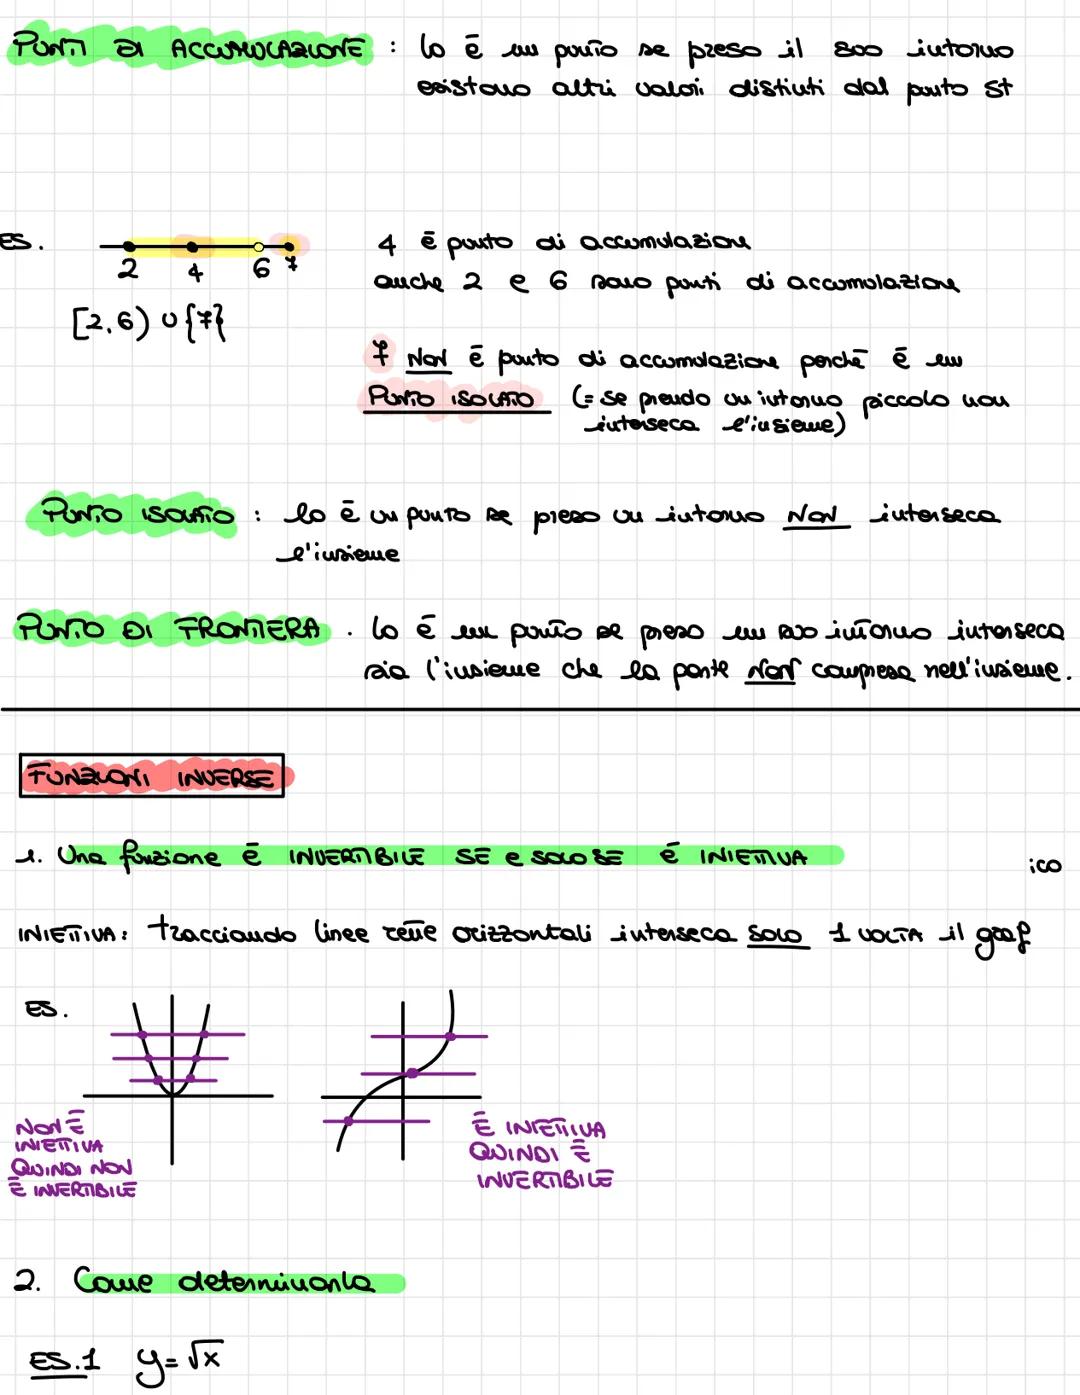 PUNTI DI ACCUMULAZIONE : lo è un punto se preso il suo intorno
esistono altri valori distinti dal punto st
ES.
2 4 6 7
[2,6) ∪ {7}
4 è punto di accumulazione
anche 2 e 6 sono punti di accumolazione
7 NON è punto di accumulazione perchè è un
PUNTO ISOLATO (= se prendo un intorno piccolo non
interseca l'insieme)
PUNTO ISOLATO : lo è un punto se preso un intorno NON interseca
l'insieme
PUNTO DI FRONTIERA . lo è un punto se preso un suo intorno interseca
sia l'insieme che la parte NON compresa nell'insieme.
FUNZIONI INVERSE
1. Una funzione è INVERTIBILE SE e SOLO SE è INIETTIVA
ico
INIETTIVA: tracciando linee rette orizzontali interseca SOLO 1 VOLTA il graf
ES.
NON È
INIETTIVA
QUINDI NON
È INVERTIBILE
È INIETTIVA
QUINDI È
INVERTIBILE
2. Come determinarla
ES.1 y=√x